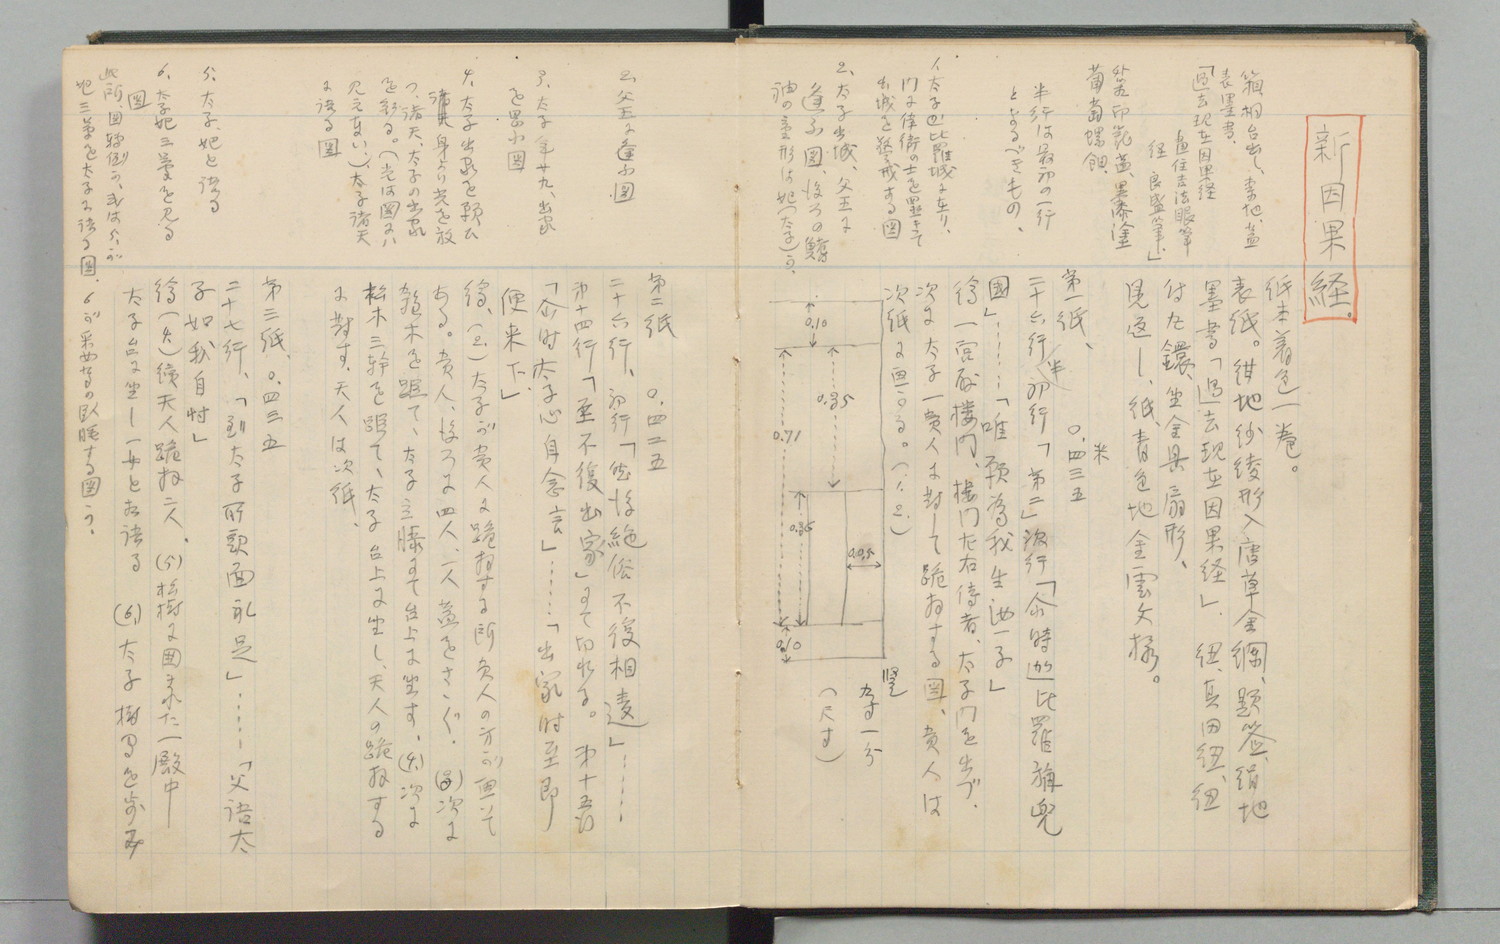 新因果経。
箱桐台出し、素地、蓋
表墨書、
「過去現在因果経
画住吉法眼筆
経 良盛筆」
葡萄螺鈿
半行は最初の一行
となるべきもの、
1、太子迦比羅城に在り、
門に侍衛の士を置きて
出城を警戒する図
2、太子出城、父王に
逢ふ図、後ろの
紙本着色一巻。
表紙。紺地紗綾形入唐草金襴、題簽、絹地
墨書「過去現在因果経」、紐、真田紐、紐
付九鐶、座金具扇形、
見返し、紙、青色地金雲文様。
第一紙、 〇.四三五米
二十六行半 初行「第二」次行「尒時迦比羅旆兜
國」……「唯願為我生汝一子」
繪一宮殿楼門、楼門左右侍者、太子門を出づ、
次に太子一貴人に対して跪拝する図、貴人は
次紙に亘る。(1、2、)
0.10
0.35
0.71
0.35
0.05
0.10
竪
九寸一分
(尺寸)
2、父王に逢ふ図
3、太子年十九、出家
を思ふ図
4、太子出家を願ひ
諸天身より光を放
つ、諸天、太子の出家
を願る。(光は図には
見えない)、太子諸天
に語る図
5、太子、妃と語る
6、太子妃三夢を見る
図
此所、図顛倒か、或は5、が
妃三夢を太子に語る図、6が采女等の臥睡する図か、
第二紙 〇.四二五
二十六行、初行「然後絶俗不復相違」……
第十四行「至不復出家」まで切れる。第十五行
「尒時太子心自念言」……「出家時至即
便来下、」
繪、(2、)太子が貴人に跪拝する所貴人の方が亘って
ある。貴人、後ろに四人、一人蓋をさぐ。(3)次に
雑木を距て、太子立膝にて台上に坐す、(4、)次に
松木三幹を距て、太子台上に坐し、天人の跪拝する
に対す、天人は次紙、
第三紙、〇.四三五
二十七行、「到太子所頭面礼足」……「父語太
子如我自忖」
繪(4)続天人跪拝二人、(5)松樹に囲まれた一殿中
太子台に坐し一女と相語る (6)太子樹間を歩み